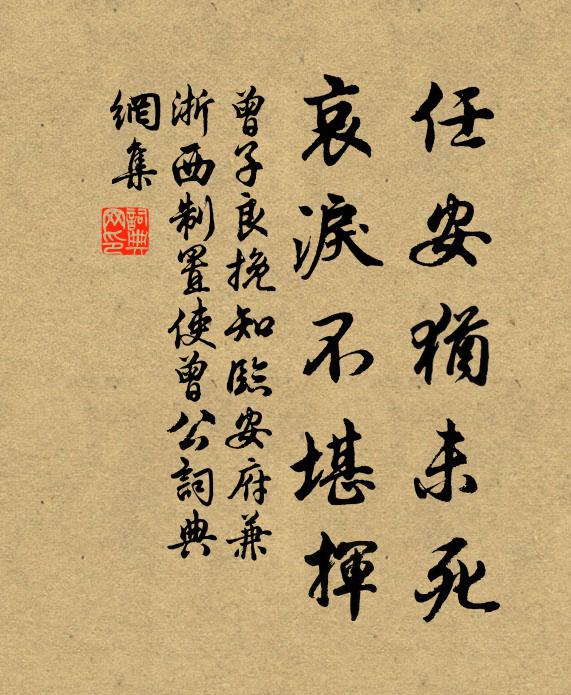 任安猶未死
哀淚不堪揮
曾子良挽知臨安府兼
浙西制置使曾公詞典
網集
詞典網印